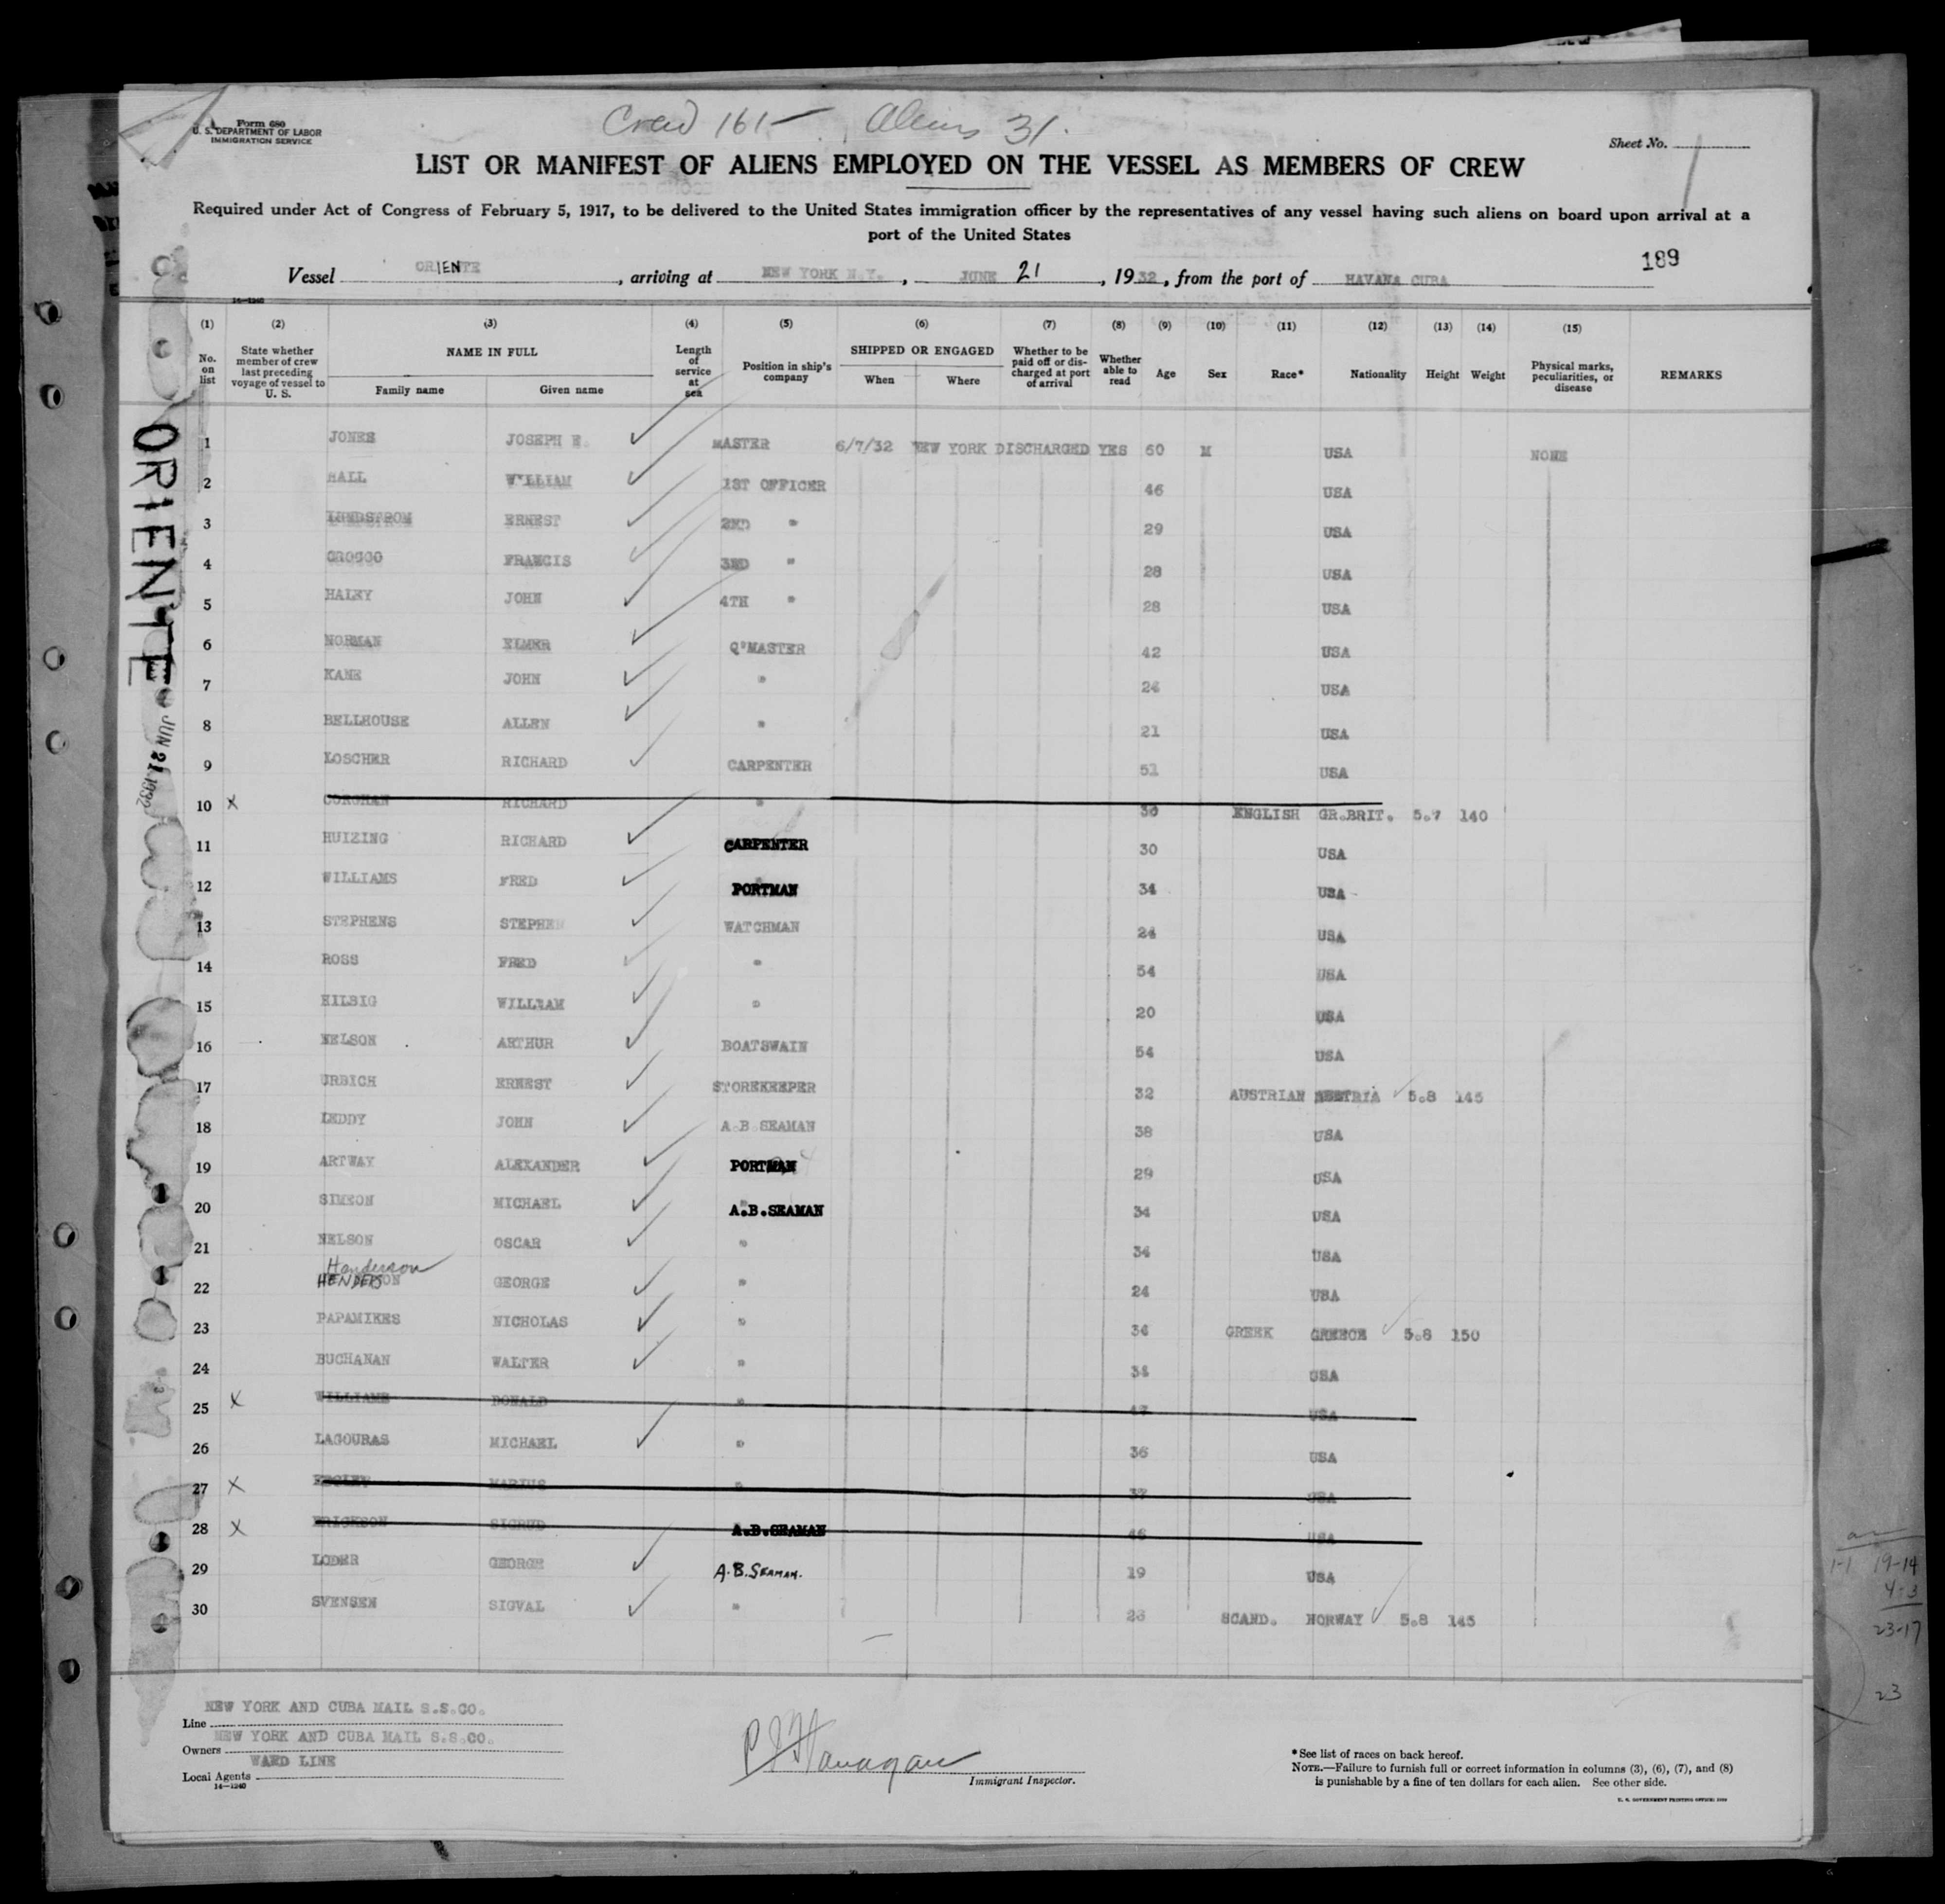 Crew 161 - Aliens 31.
Form 680
U. S. DEPARTMENT OF LABOR
IMMIGRATION SERVICE
Sheet No. 1
LIST OR MANIFEST OF ALIENS EMPLOYED ON THE VESSEL AS MEMBERS OF CREW
Required under Act of Congress of February 5, 1917, to be delivered to the United States immigration officer by the representatives of any vessel having such aliens on board upon arrival at a
port of the United States
189
Vessel ORIENTE, arriving at NEW YORK N.Y., JUNE 21, 1932, from the port of HAVANA CUBA
14—1240
(1) (2) (3) (4) (5) (6) (7) (8) (9) (10) (11) (12) (13) (14) (15)
No. on list
State whether member of crew last preceding voyage of vessel to U. S.
NAME IN FULL
Family name Given name
Length of service at sea
Position in ship's company
SHIPPED OR ENGAGED
When Where
Whether to be paid off or discharged at port of arrival
Whether able to read
Age Sex Race* Nationality Height Weight
Physical marks, peculiarities, or disease
REMARKS
1 JONES JOSEPH E. MASTER 6/7/32 NEW YORK DISCHARGED YES 60 M USA NONE
2 HALL WILLIAM 1ST OFFICER 46 USA
3 LUNDSTROM ERNEST 2ND " 29 USA
4 CROSCO FRANCIS 3RD " 28 USA
5 HALEY JOHN 4TH " 28 USA
6 NORMAN ELMER Q'MASTER 42 USA
7 KANE JOHN " 24 USA
8 BELLHOUSE ALLEN " 21 USA
9 LOSCHER RICHARD CARPENTER 51 USA
10 X RICHARD " 30 ENGLISH GR.BRIT. 5.7 140
11 HUIZING RICHARD CARPENTER 30 USA
12 WILLIAMS FRED PORTMAN 34 USA
13 STEPHENS STEPHEN WATCHMAN 24 USA
14 ROSS FRED " 54 USA
15 HILSIG WILLIAM " 20 USA
16 NELSON ARTHUR BOATSWAIN 54 USA
17 URBICH ERNEST STOREKEEPER 32 AUSTRIAN AUSTRIA 5.8 145
18 LEDDY JOHN A.B SEAMAN 38 USA
19 ARTWAY ALEXANDER PORTMAN 29 USA
20 SIMEON MICHAEL A.B.SEAMAN 34 USA
21 NELSON OSCAR " 34 USA
Henderson
22 HENDERSON GEORGE " 24 USA
23 PAPAMIKES NICHOLAS " 34 GREEK GREECE 5.8 150
24 BUCHANAN WALTER " 34 USA
25 X WILLIAMS DONALD " USA
26 LAGOURAS MICHAEL " 36 USA
27 X MARIUS " 37 USA
28 X ERICKSON SIGRUD A.B.SEAMAN 46 USA
29 LODER GEORGE A.B. SEAMAN. 19 USA
30 SVENSEN SIGVAL " 23 SCAND. NORWAY 5.8 145
ORIENTE
JUN 21 1932
19-14
4-3
23-17
23
Line NEW YORK AND CUBA MAIL S.S.CO.
Owners NEW YORK AND CUBA MAIL S.S.CO.
Local Agents WARD LINE
14—1240
Immigrant Inspector.
*See list of races on back hereof.
NOTE.—Failure to furnish full or correct information in columns (3), (6), (7), and (8)
is punishable by a fine of ten dollars for each alien. See other side.